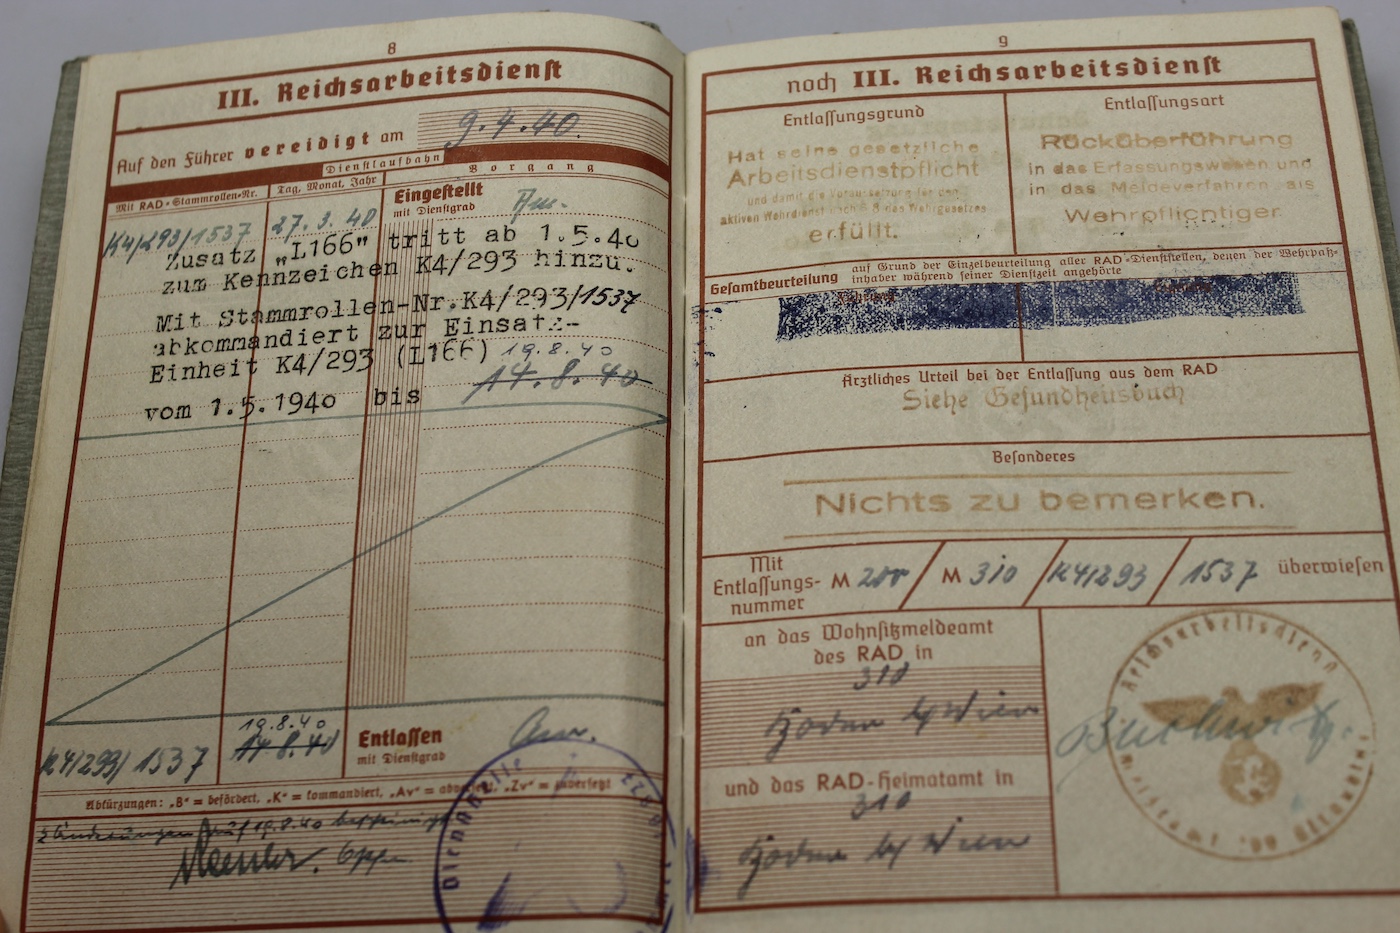 8
III. Reichsarbeitsdienst
Auf den Führer vereidigt am 9.4.40.
Dienstlaufbahn
Mit RAD-Stammrollen-Nr.
Tag, Monat, Jahr
Vorgang
K4/293/1537
27.3.40
Eingestellt
mit Dienstgrad
Zusatz „L166" tritt ab 1.5.40
zum Kennzeichen K4/293 hinzu.
Mit Stammrollen-Nr.K4/293/1537
abkommandiert zur Einsatz-
Einheit K4/293 (L166) 19.8.40
vom 1.5.1940 bis 14.8.40
K4/293/1537
19.8.40
14.8.40
Entlassen
mit Dienstgrad
Abkürzungen: „B" = befördert, „K" = kommandiert, „Av" = versetzt, „Zv" = versetzt
2 Änderungen auf 19.8.40
Dienststelle
9
noch III. Reichsarbeitsdienst
Entlassungsgrund
Hat seine gesetzliche
Arbeitsdienstpflicht
und damit die Voraussetzung für den
aktiven Wehrdienst nach § 8 des Wehrgesetzes
erfüllt.
Entlassungsart
Rücküberführung
in das Erfassungswesen und
in das Meldeverfahren als
Wehrpflichtiger
Gesamtbeurteilung auf Grund der Einzelbeurteilung aller RAD-Dienststellen, denen der Wehrpaß-
inhaber während seiner Dienstzeit angehörte
Ärztliches Urteil bei der Entlassung aus dem RAD
Siehe Gesundheitsbuch
Besonderes
Nichts zu bemerken.
Mit
Entlassungs-
nummer
M 200 / M 310 / K4/293 / 1537 überwiesen
an das Wohnsitzmeldeamt
des RAD in
310
Wien
und das RAD-Heimatamt in
310
Wien
Reichsarbeitsdienst